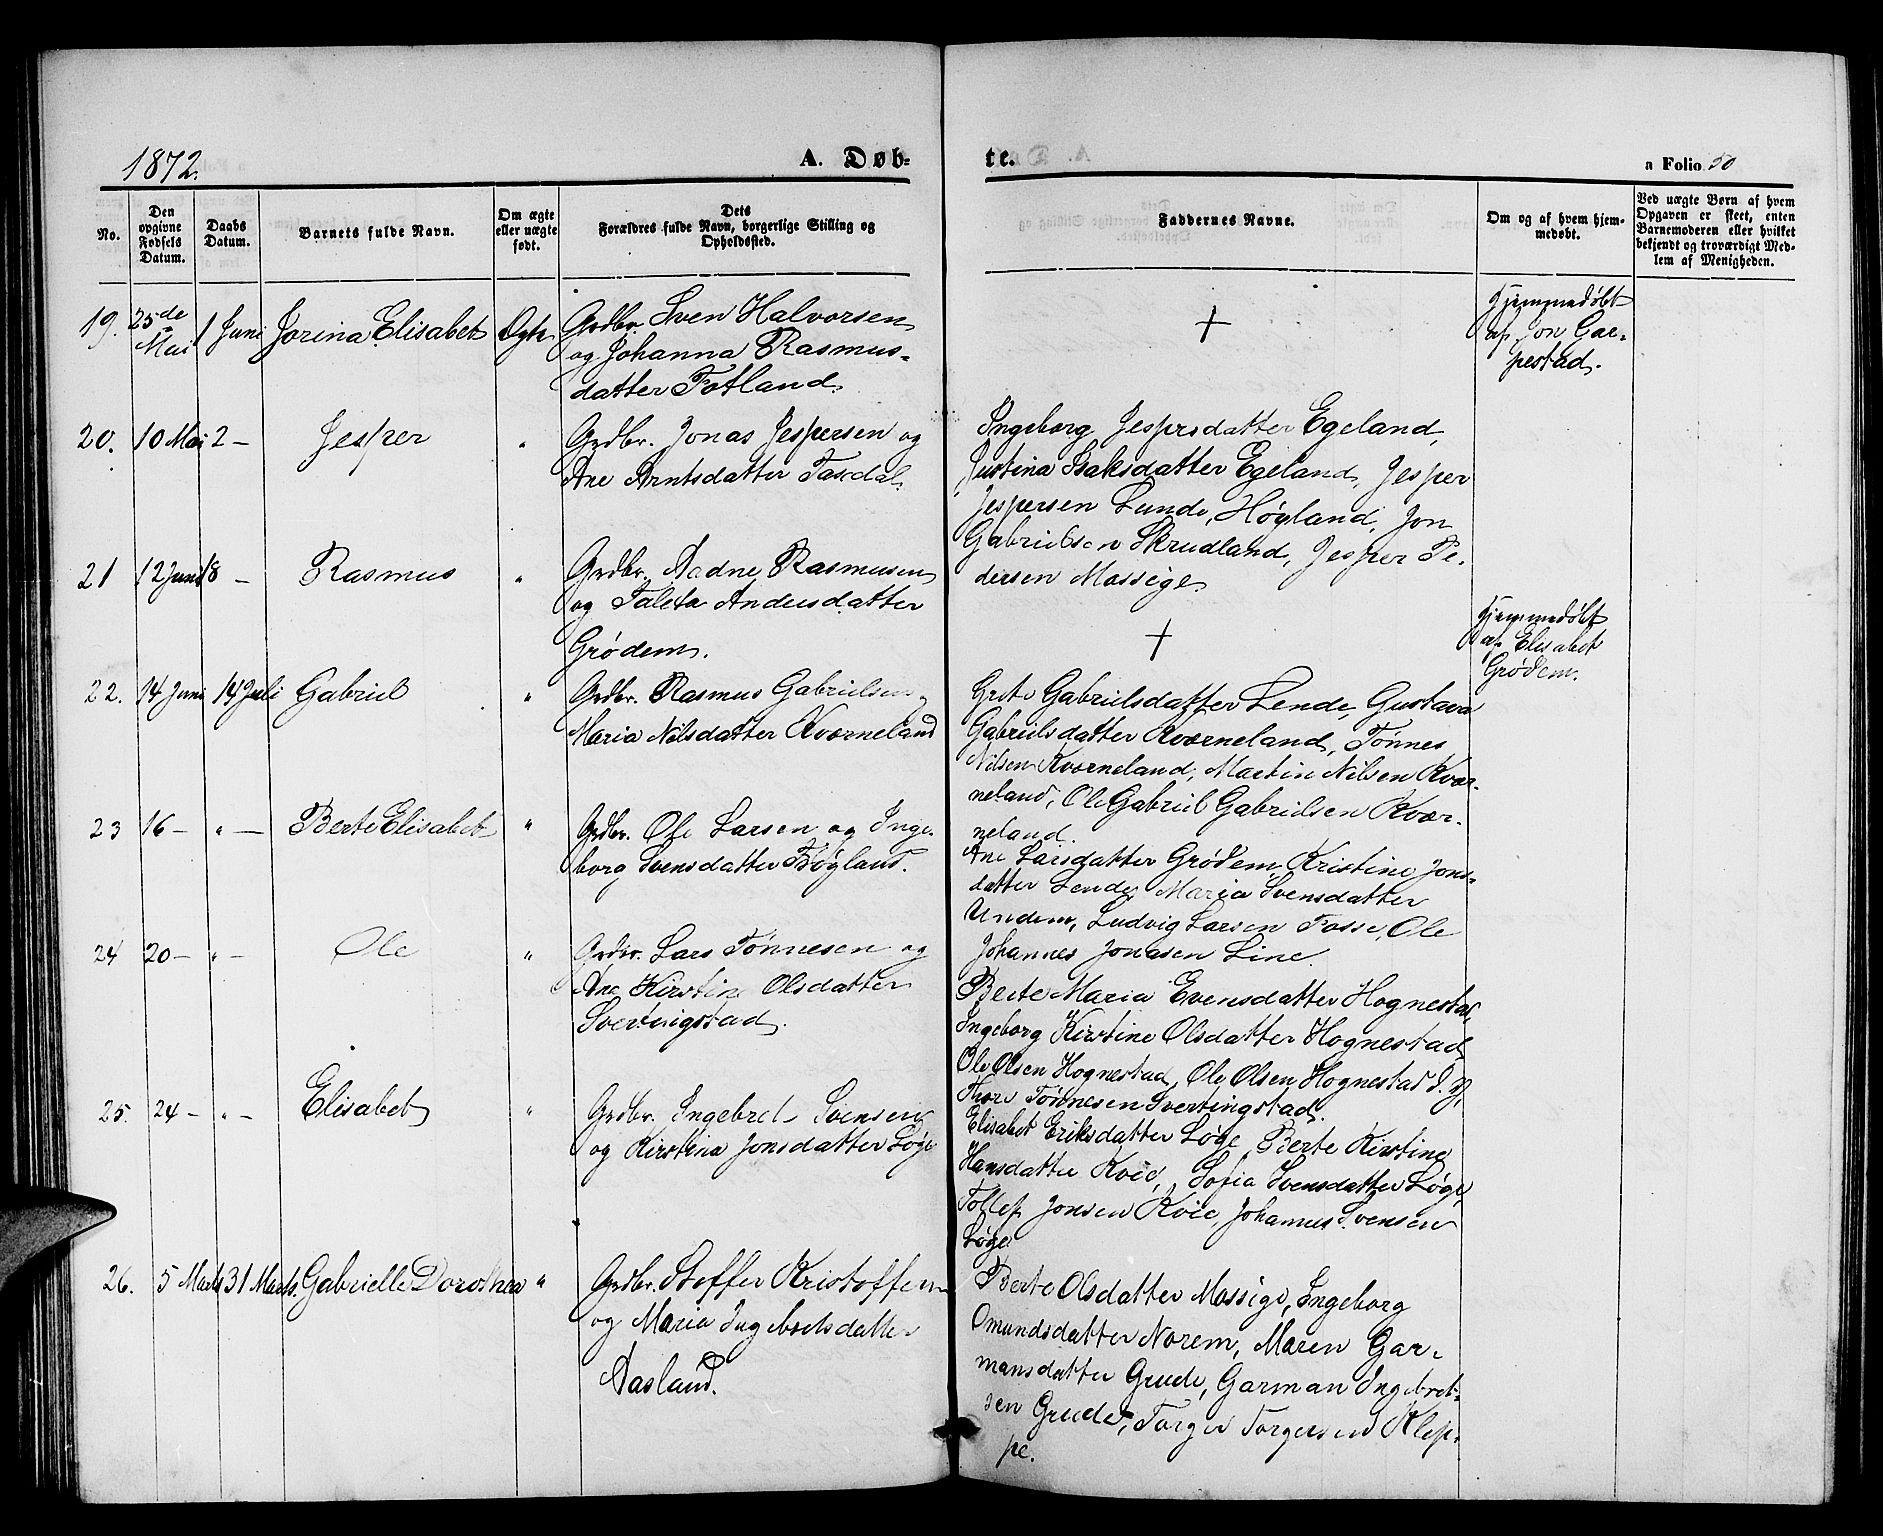 1872.
A. Døb-
te.
a Folio 50
No.
Den
opgivne
Fødsels
Datum.
Daabs
Datum.
Barnets fulde Navn.
Om ægte
eller uægte
født.
Dets
Forældres fulde Navn, borgerlige Stilling og
Opholdssted.
Faddernes Navne.
Om og af hvem hjem-
medøbt.
Ved uægte Børn af hvem
Opgaven er skeet, enten
Barnemoderen eller hvilket
bekjendt og troværdigt Med-
lem af Menigheden.
19. 25de Mai 1 Juni Jorina Elisabet Ægte
Grdbr. Sven Halvorsen
og Johanna Rasmus-
datter Fotland.
+
Hjemmedøbt
af Jon Gar-
pestad.
20. 10 Mai 2 — Jesper "
Grdbr. Jonas Jespersen og
Ane Arntsdatter Taxdal.
Ingeborg Jesprsdatter Egeland,
Justina Isaksdatter Egeland, Jesper
Jespersen Lunde, Høyland, Jon
Gabrielsen Skrudland, Jesper Pe-
dersen Mossige.
21 12 Juni 18 — Rasmus "
Grdbr. Aadne Rasmusen
og Taleta Andersdatter
Grødem.
+
Hjemmedøbt
af Elisabet
Grødem.
22. 14 Juni 14 Juli Gabriel "
Grdbr. Rasmus Gabrielsen og
Maria Nilsdatter Kværneland
Grete Gabrielsdatter Lende, Gustava
Gabrielsdatter Kværneland, Tønnes
Nilsen Kværneland, Martin Nilsen Kvær-
neland, Ole Gabriel Gabrielsen Kvær-
neland.
23 16 — " — Berte Elisabet "
Grdbr. Ole Larsen og Inge-
borg Svensdatter Høyland.
Ane Larsdatter Grødem, Kristine Jons-
datter Lende, Maria Svensdatter
Undem, Ludvig Larsen Fosse, Ole
Johannes Jonasen Line.
24 20 — " — Ole "
Grdbr. Lars Tønnesen og
Ane Kirstine Olsdatter
Svertingstad.
Berte Maria Evensdatter Hognestad,
Ingeborg Kirstine Olsdatter Hognestad
Ole Olsen Hognestad, Ole Olsen Hognestad d. y,
Thore Tønnesen Svertingstad.
25. 24 — " — Elisabet "
Grdbr. Ingebret Svensen
og Kirstina Jonsdatter Løge
Elisabet Eriksdatter Løge, Berte Kirstine
Hansdatter Kvie, Sofia Svensdatter Løge,
Tollef Jonsen Kvie, Johannes Svensen
Løge.
26. 5 Marts 31 Marts. Gabrielle Dorothea "
Grdbr. Stoffer Kristoffersen
og Maria Ingebretsdatter
Aasland.
Berte Olsdatter Mossige, Ingeborg
Omundsdatter Norem, Maren Gar-
mansdatter Grude, Garman Ingebret-
sen Grude, Torger Torgersen Klep-
pe.